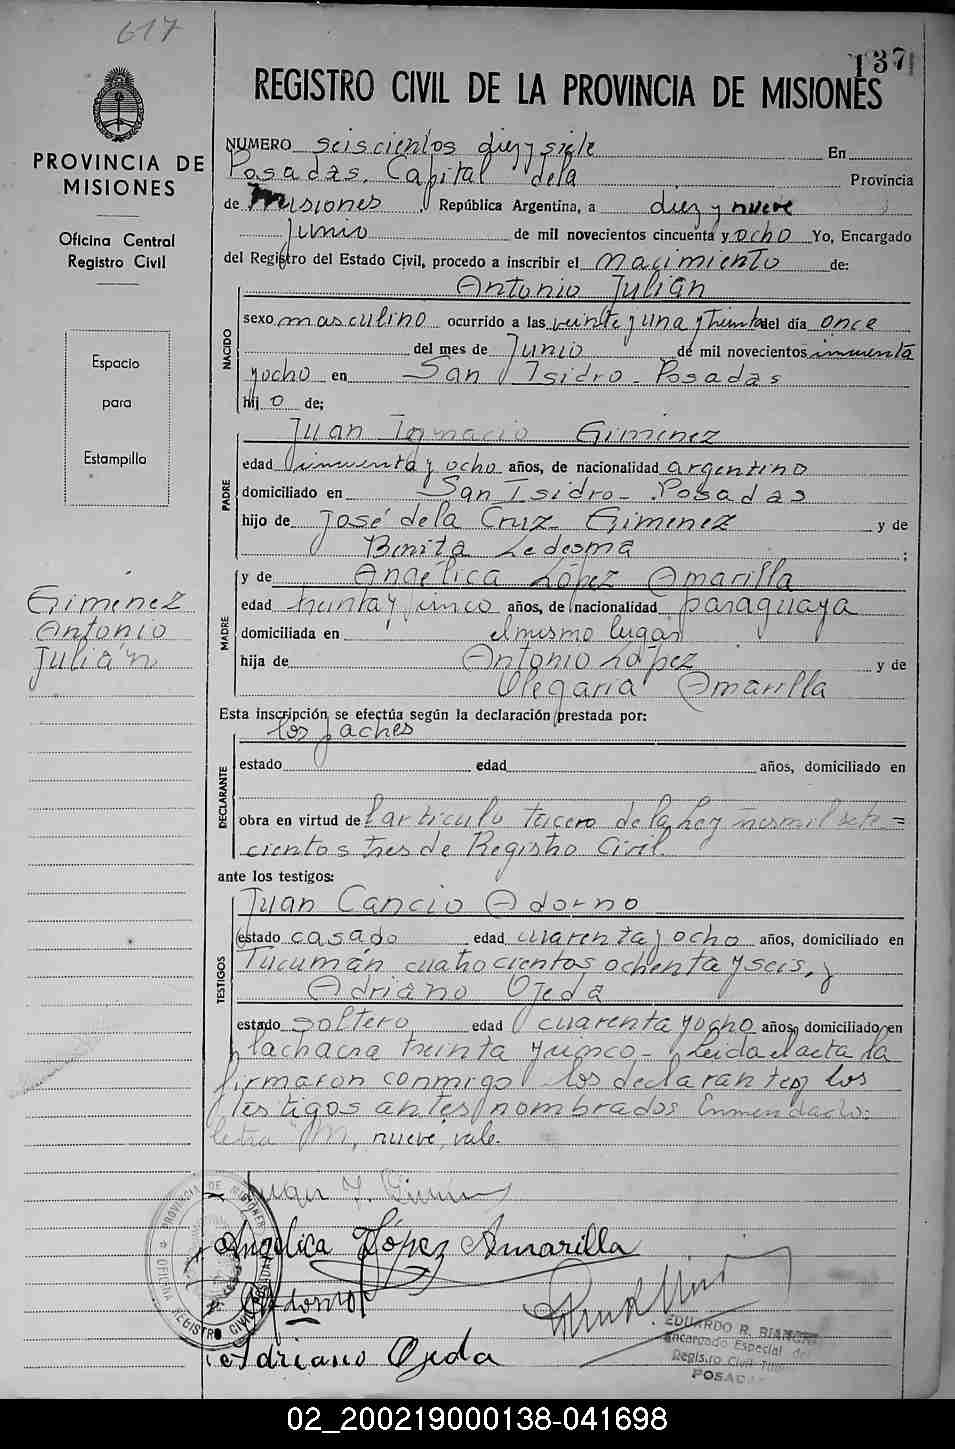 617
137
REGISTRO CIVIL DE LA PROVINCIA DE MISIONES
PROVINCIA DE
MISIONES
Oficina Central
Registro Civil
Espacio
para
Estampilla
Gimenez
Antonio
Julián
NUMERO seiscientos diez y siete En
Posadas, Capital de la Provincia
de Misiones, República Argentina, a diez y nueve
Junio de mil novecientos cincuenta y ocho Yo, Encargado
del Registro del Estado Civil, procedo a inscribir el nacimiento de:
NACIDO
Antonio Julián
sexo masculino ocurrido a las veinte y una y treinta del día once
del mes de Junio de mil novecientos cincuenta
y ocho en San Isidro - Posadas
hijo de;
PADRE
Juan Ignacio Gimenez
edad cincuenta y ocho años, de nacionalidad argentino
domiciliado en San Isidro - Posadas
hijo de José de la Cruz Gimenez y de
Benita Ledesma ;
MADRE
y de Angélica López Amarilla
edad treinta y cinco años, de nacionalidad paraguaya
domiciliada en el mismo lugar
hija de Antonio López y de
Olegaria Amarilla
Esta inscripción se efectúa según la declaración prestada por:
DECLARANTE
los
estado edad años, domiciliado en
obra en virtud de l articulo tercero de la Ley mil sete=
cientos tres de Registro Civil.
ante los testigos:
TESTIGOS
Juan Cancio Adorno
estado casado edad cuarenta y ocho años, domiciliado en
Tucumán cuatrocientos ochenta y seis, y
Adriano Ojeda
estado soltero edad cuarenta y ocho años, domiciliado en
la chacra treinta y cinco - Leida el acta la
firmaron conmigo los declarantes y los
testigos antes nombrados Enmendado:
letra M, nueve, vale.
Angélica López Amarilla
Adorno
Adriano Ojeda
PROVINCIA DE MISIONES
OFICINA REGISTRO CIVIL POSADAS
EDUARDO R.
Encargado Especial del
Registro Civil
POSADAS
02_200219000138-041698